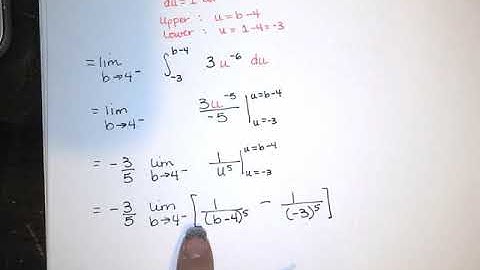 du = 1
Upper : u = b-4
Lower : u = 1-4 = -3
= lim b→4⁻ ∫_{-3}^{b-4} 3u^{-6} du
= lim b→4⁻ 3u^{-5}/-5 |_{u=-3}^{u=b-4}
= -3/5 lim b→4⁻ 1/u^5 |_{u=-3}^{u=b-4}
= -3/5 lim b→4⁻ [ 1/(b-4)^5 - 1/(-3)^5 ]